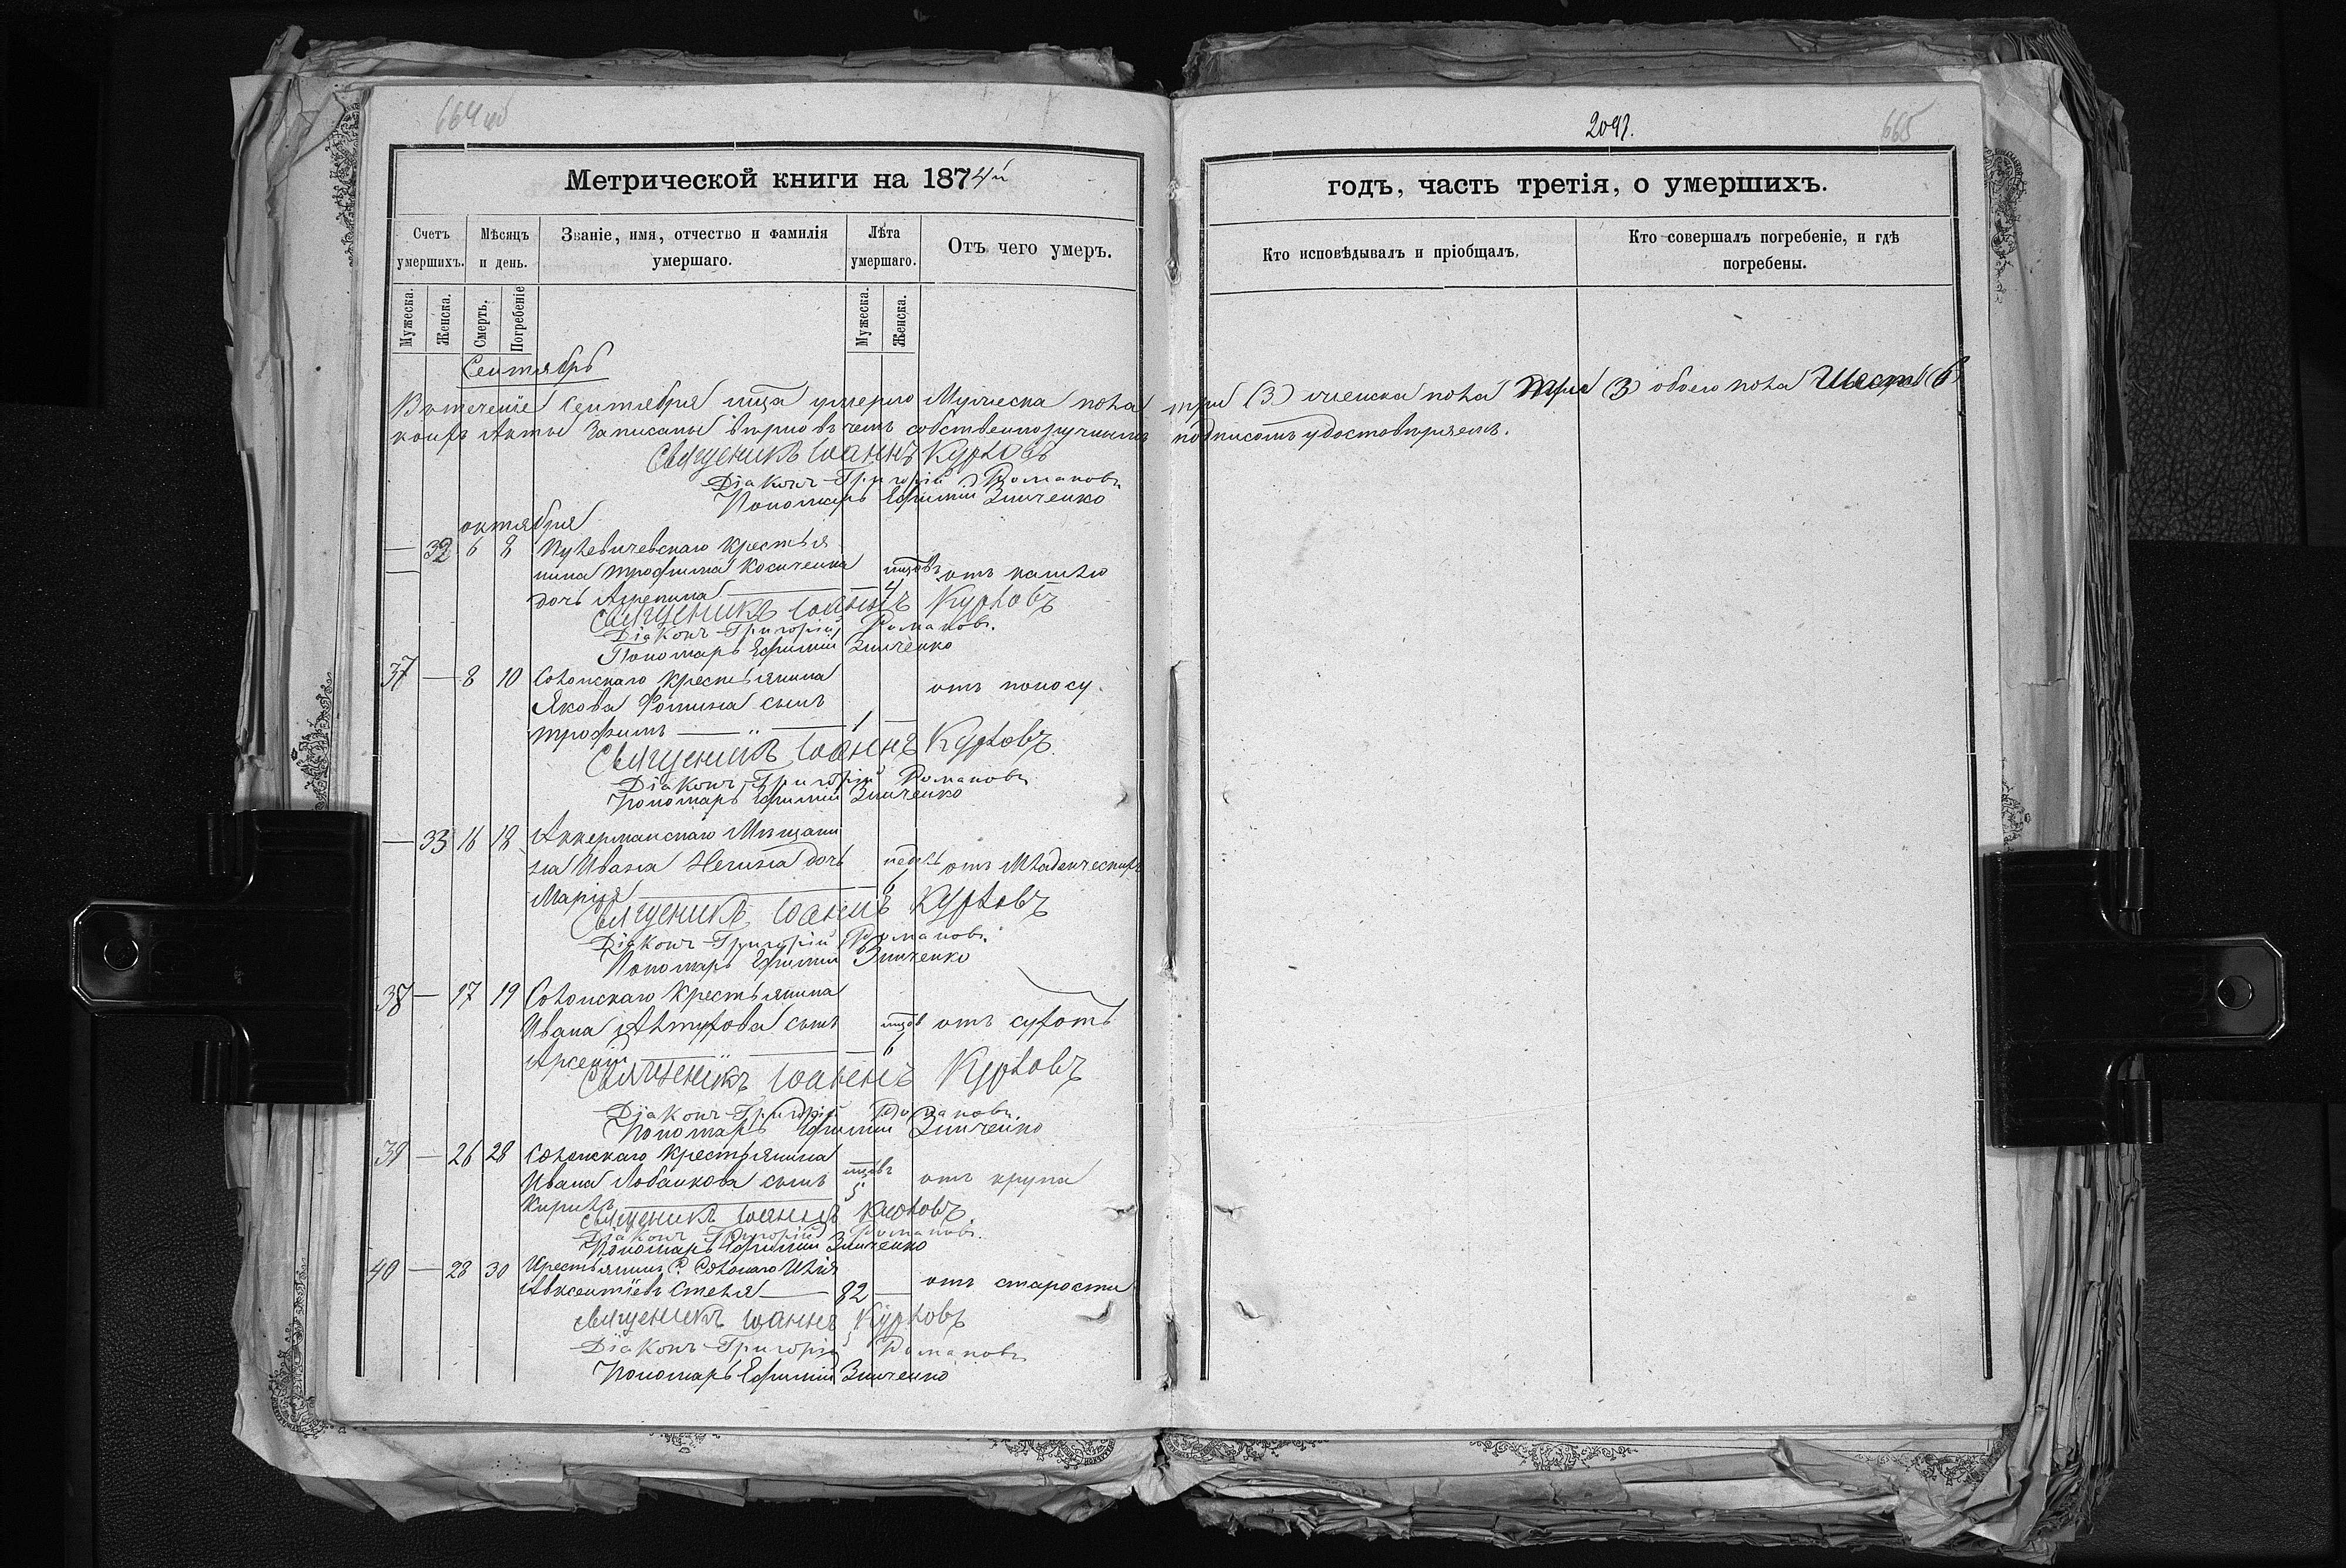 664 об
2091.
665
Метрической книги на 1874й
годъ, часть третія, о умершихъ.
Счетъ умершихъ.
Мѣсяцъ и день.
Званіе, имя, отчество и фамилія умершаго.
Лѣта умершаго.
Отъ чего умеръ.
Кто исповѣдывалъ и пріобщалъ.
Кто совершалъ погребеніе, и гдѣ погребены.
Мужеска.
Женска.
Смерть.
Погребеніе
Мужеска.
Женска.
Сентябрь
Въ теченіе Сентября мца умерло Мужеска пола три (3) женска пола три (3) обоего пола Шесть (6)
коихъ Акты Записаны вѣрно въ чемъ собственноручнымъ подписомъ удостовѣряемъ.
Священикъ Іоаннъ Курловъ
Діаконъ Григорій Романовъ
Пономарь Ефимій Зинченко
октября
— 32 6 8 крестья
нина трофима Косиченка мцовъ отъ кашлю
дочь Агрепина — 4
Священикъ Іоаннъ Курловъ
Діаконъ Григорій Романовъ.
Пономарь Ефимій Зинченко
37 — 8 10 Солонскаго крестьянина
Якова Фомина сынъ отъ поносу.
трофимъ — „ — 1 —
Священикъ Іоаннъ Курловъ
Діаконъ Григорій Романовъ
Пономарь Ефимій Зинченко
— 33 16 18 Аккерманскаго Мѣщани
на Ивана дочь недѣль отъ Младенческихъ
Марія — 6
Священикъ Іоаннъ Курловъ
Діаконъ Григорій Романовъ.
Пономарь Ефимій Зинченко
38 — 17 19 Солонскаго крестьянина
Ивана сынъ мцов отъ сухотъ
Арсеній — „ — 6
Священикъ Іоаннъ Курловъ
Діаконъ Григорій Романовъ.
Пономарь Ефимій Зинченко
39 — 26 28 Солонскаго крестьянина
Ивана Лобанкова сынъ мцовъ отъ крупа
Кирилъ — 5
Священикъ Іоаннъ Курловъ
Діаконъ Григорій Романовъ.
Пономарь Ефимій Зинченко
40 — 28 30 Крестьянинъ С. Солонаго Илія
Авксентіевъ — 82 — отъ старости
Священикъ Іоаннъ Курловъ
Діаконъ Григорій Романовъ
Пономарь Ефимій Зинченко